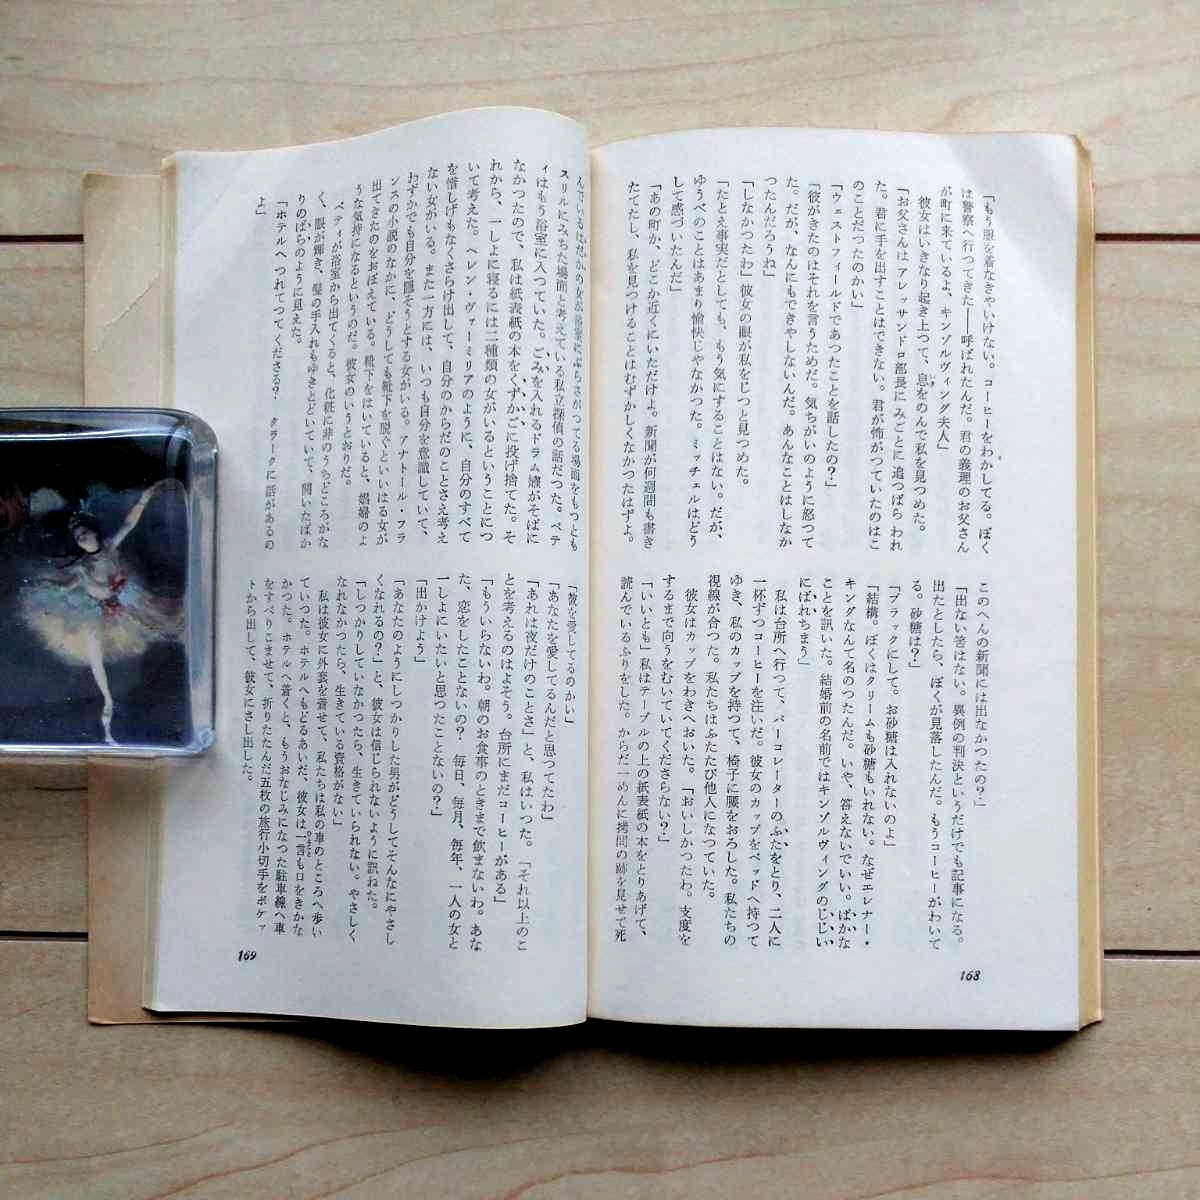 「もう服を着なきやいけない。コーヒーをわかしてる。ぼく
は警察へ行つてきた――呼ばれたんだ。君の義理のお父さん
が町に来ているよ、キンゾルヴィング夫人」
彼女はいきなり起き上つて、息をのんで私を見つめた。
「お父さんはアレッサンドロ部長にみごとに追つぱらわれ
た。君に手を出すことはできない。君が怖がつていたのはこ
のことだつたのかい」
「ウェストフィールドであつたことを話したの？」
「彼がきたのはそれを言うためだ。気ちがいのように怒つて
た。だが、なんにもできやしないんだ。あんなことはしなか
つたんだろうね」
「しなかつたわ」彼女の眼が私をじつと見つめた。
「たとえ事実だとしても、もう気にすることはない。だが、
ゆうべのことはあまり愉快じやなかつた。ミッチェルはどう
して感づいたんだ」
「あの町か、どこか近くにいただけよ。新聞が何週間も書き
たてたし、私を見つけることはむずかしくなかつたはずよ。
このへんの新聞には出なかつたの？」
「出ない筈はない。異例の判決というだけでも記事になる。
出たとしたら、ぼくが見落したんだ。もうコーヒーがわいて
る。砂糖は？」
「ブラックにして。お砂糖は入れないのよ」
「結構。ぼくはクリームも砂糖もいれない。なぜエレナー・
キングなんて名のつたんだ。いや、答えないでいい。ばかな
ことを訊いた。結婚前の名前ではキンゾルヴィングのじじい
にばれちまう」
私は台所へ行つて、パーコレーターのふたをとり、二人に
一杯ずつコーヒーを注いだ。彼女のカップをベッドへ持つて
ゆき、私のカップを持つて、椅子に腰をおろした。私たちの
視線が合つた。私たちはふたたび他人になつていた。
彼女はカップをわきへおいた。「おいしかつたわ。支度を
するまで向うをむいていてくださらない？」
「いいとも」私はテーブルの上の紙表紙の本をとりあげて、
読んでいるふりをした。からだ一めんに拷問の跡を見せて死
168
んでいるはだかの女が浴室にぶらさがつてる場面をもつとも
スリルにみちた場面と考えている私立探偵の話だつた。ベテ
ィはもう浴室に入つていた。ごみを入れるドラム罐がそばに
なかつたので、私は紙表紙の本をくずかごに投げ捨てた。そ
れから、一しよに寝るには二種類の女がいるということにつ
いて考えた。ヘレン・ヴァーミリアのように、自分のすべて
を惜しげもなくさらけ出して、自分のからだのことさえ考え
ない女がいる。また一方には、いつも自分を意識していて、
わずかでも自分を隠そうとする女がいる。アナトール・フラ
ンスの小説のなかに、どうしても靴下を脱ぐといいはる女が
出てきたのをおぼえている。靴下をはいていると、娼婦のよ
うな気持になるというのだ。彼女のいうとおりだ。
ベティが浴室から出てくると、化粧に非のうちどころがな
く、眼が輝き、髪の手入れもゆきとどいていて、開いたばか
りのばらのように見えた。
「ホテルへつれてつてくださる？　クラークに話があるの
よ」
「彼を愛してるのかい」
「あなたを愛してるんだと思つてたわ」
「あれは夜だけのことさ」と、私はいつた。「それ以上のこ
とを考えるのはよそう。台所にまだコーヒーがある」
「もういらないわ。朝のお食事のときまで飲まないわ。あな
た、恋をしたことないの？　毎日、毎月、毎年、一人の女と
一しよにいたいと思つたことないの？」
「出かけよう」
「あなたのようにしつかりした男がどうしてそんなにやさし
くなれるの？」と、彼女は信じられないように訊ねた。
「しつかりしていなかつたら、生きていられない。やさしく
なれなかつたら、生きている資格がない」
私は彼女に外套を着せて、私たちは私の車のところへ歩い
ていつた。ホテルへもどるあいだ、彼女は一言も口をきかな
かつた。ホテルへ着くと、もうおなじみになつた駐車線へ車
をすべりこませて、折りたたんだ五枚の旅行小切手をポケッ
トから出して、彼女にさし出した。
169